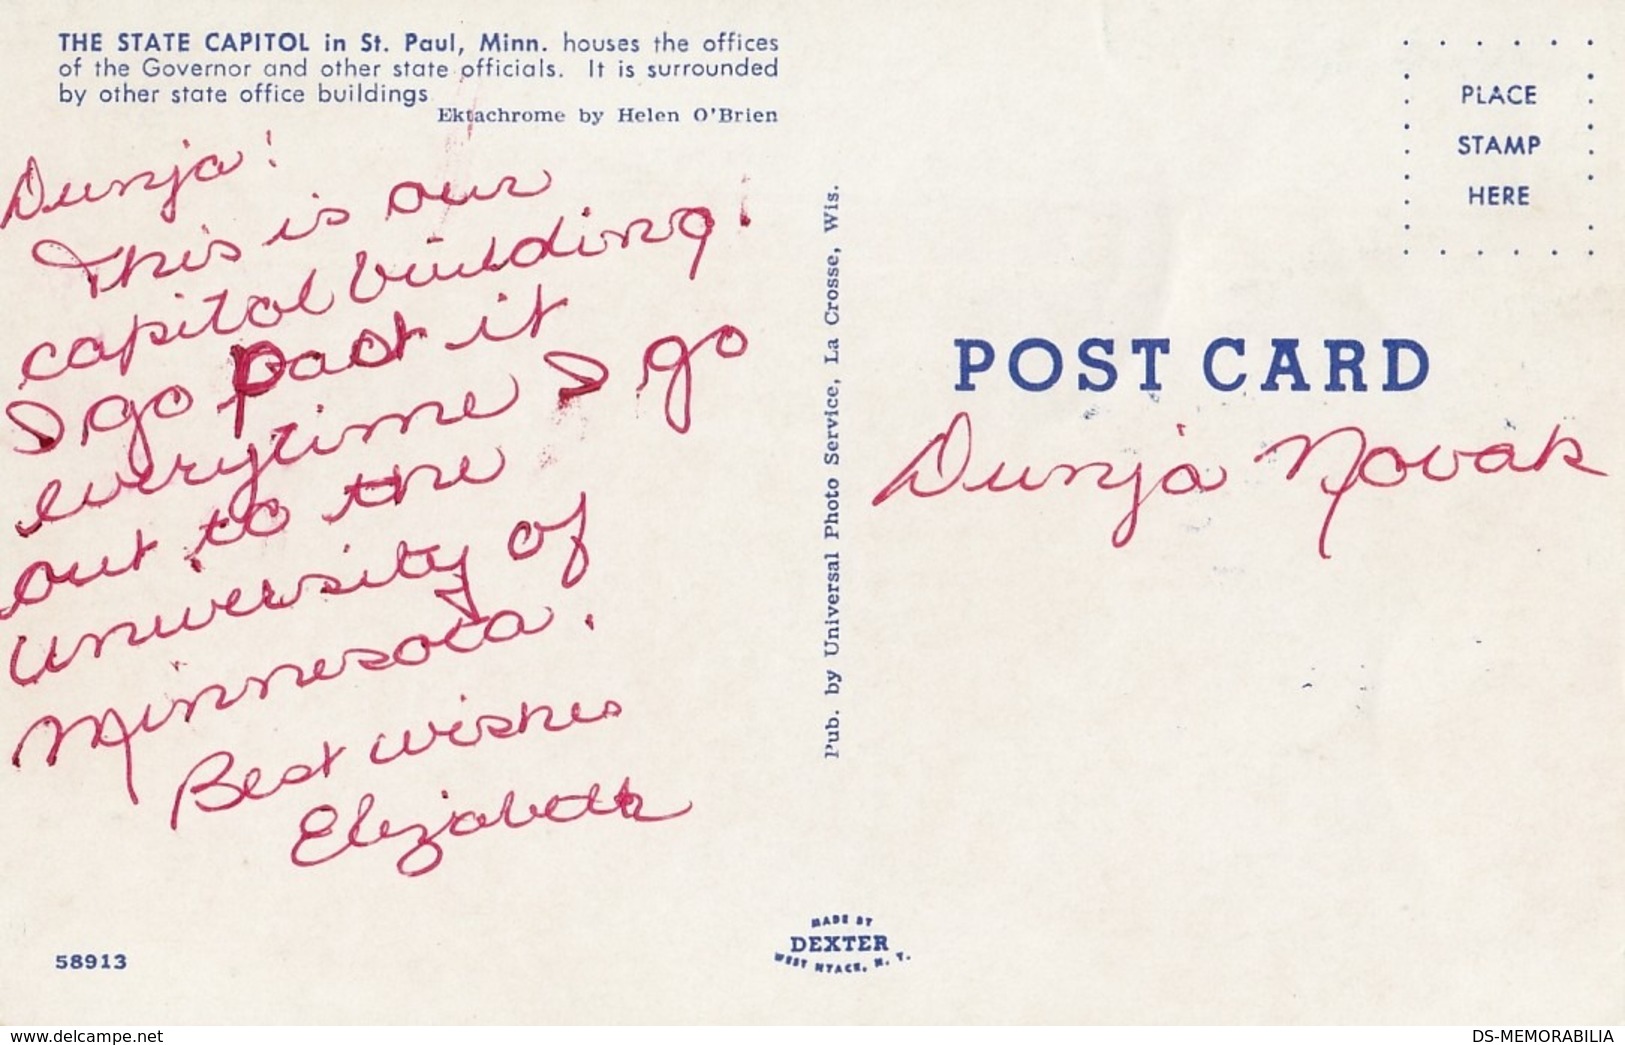 THE STATE CAPITOL in St. Paul, Minn. houses the offices
of the Governor and other state officials. It is surrounded
by other state office buildings
Ektachrome by Helen O'Brien
Dunja!
This is our
capitol building!
I go past it
everytime I go
out to the
University of
Minnesota.
Best wishes
Elizabeth
58913
Pub. by Universal Photo Service, La Crosse, Wis.
MADE BY
DEXTER
WEST NYACK, N. Y.
PLACE
STAMP
HERE
POST CARD
Dunja Novak
www.delcampe.net
DS-MEMORABILIA